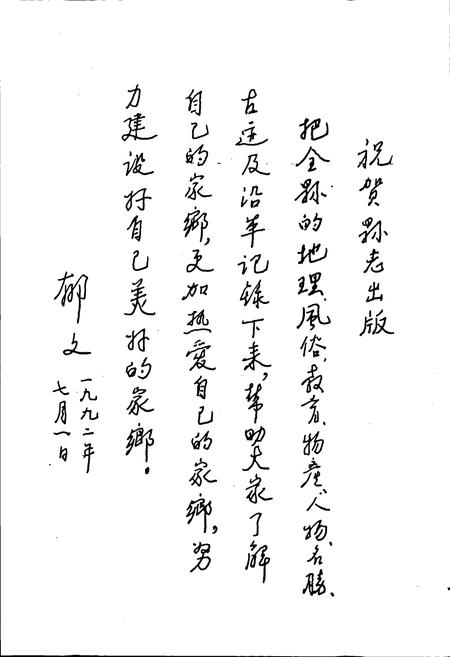 祝贺縣志出版
把全縣的地理、風俗、教育、物產、人物、名勝、
古迹及沿革记録下来,幫助大家了解
自己的家鄉,更加热爱自己的家鄉,努
力建设好自己美好的家鄉。
郁文
一九九二年
七月一日